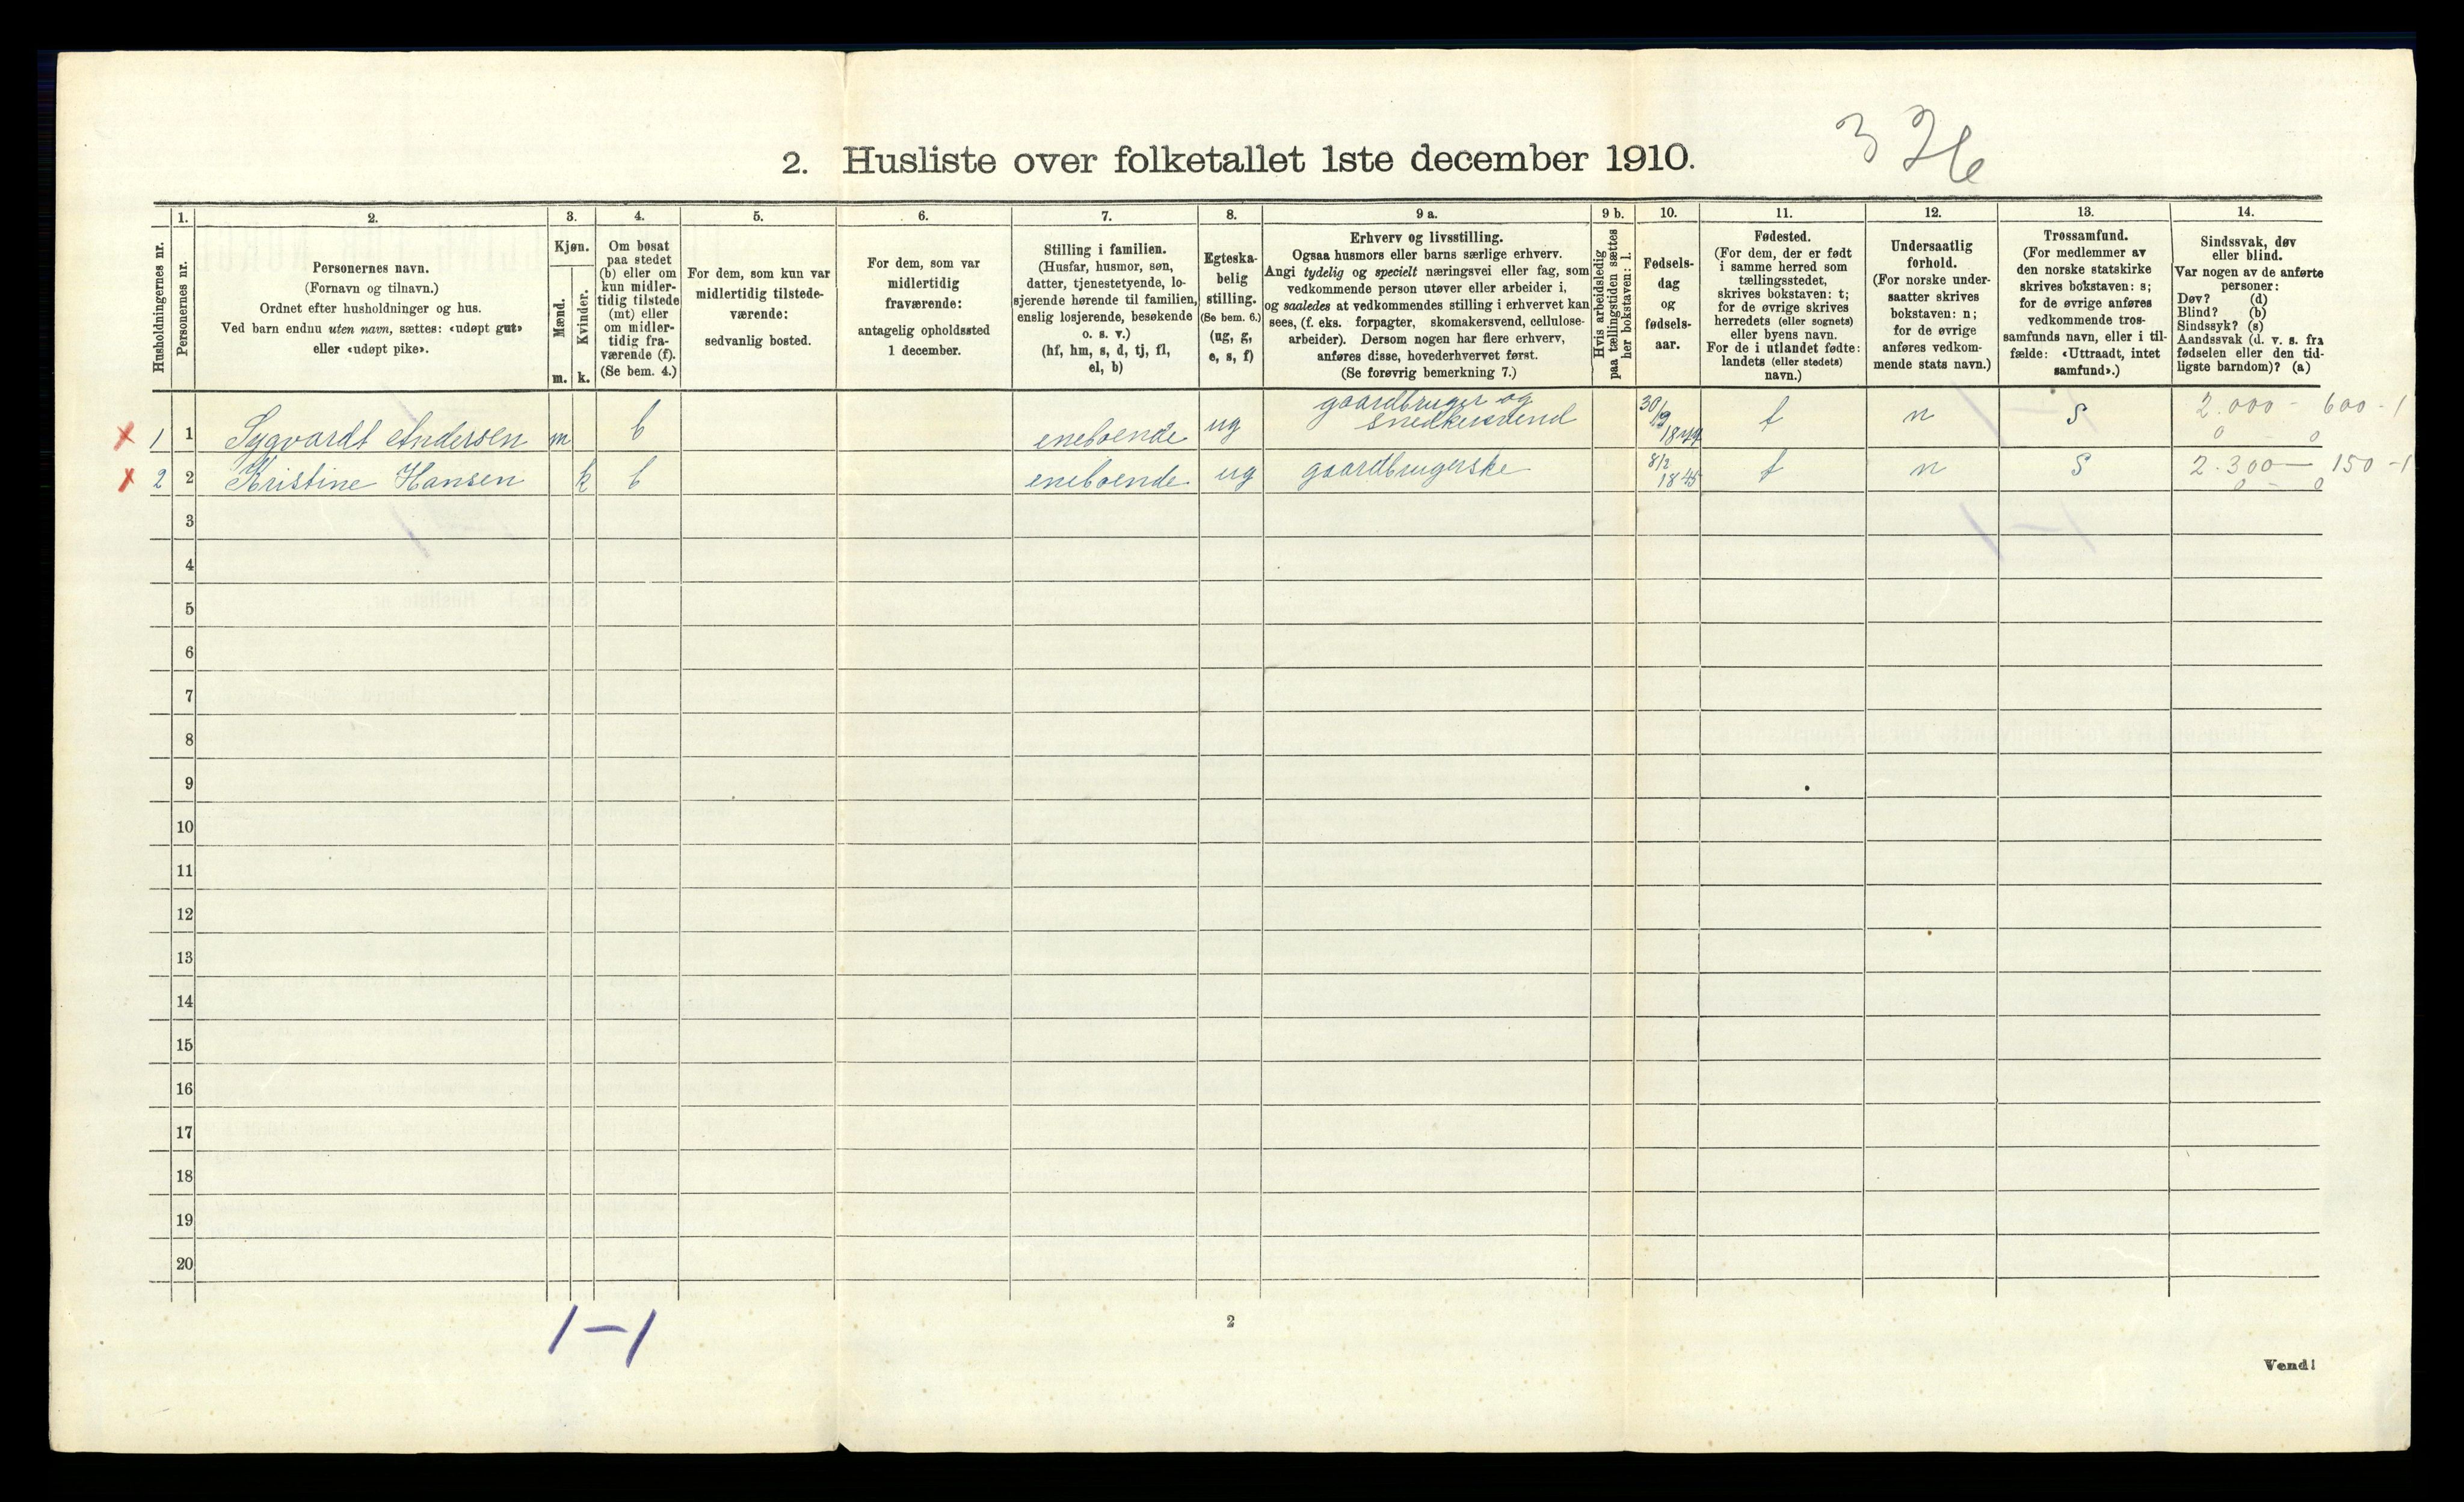 326
2. Husliste over folketallet 1ste december 1910.
Husholdningernes nr.
1.
Personernes nr.
2.
Personernes navn.
(Fornavn og tilnavn.)
Ordnet efter husholdninger og hus.
Ved barn endnu uten navn, sættes: «udøpt gut»
eller «udøpt pike».
3.
Kjøn.
Mænd.
Kvinder.
m.
k.
4.
Om bosat
paa stedet
(b) eller om
kun midler-
tidig tilstede
(mt) eller
om midler-
tidig fra-
værende (f).
(Se bem. 4.)
5.
For dem, som kun var
midlertidig tilstede-
værende:
sedvanlig bosted.
6.
For dem, som var
midlertidig
fraværende:
antagelig opholdssted
1 december.
7.
Stilling i familien.
(Husfar, husmor, søn,
datter, tjenestetyende, lo-
sjerende hørende til familien,
enslig losjerende, besøkende
o. s. v.)
(hf, hm, s, d, tj, fl,
el, b)
8.
Egteska-
belig
stilling.
(Se bem. 6.)
(ug, g,
e, s, f)
9 a.
Erhverv og livsstilling.
Ogsaa husmors eller barns særlige erhverv.
Angi tydelig og specielt næringsvei eller fag, som
vedkommende person utøver eller arbeider i,
og saaledes at vedkommendes stilling i erhvervet kan
sees, (f. eks. forpagter, skomakersvend, cellulose-
arbeider). Dersom nogen har flere erhverv,
anføres disse, hovederhvervet først.
(Se forøvrig bemerkning 7.)
9 b.
Hvis arbeidsledig
paa tællingstiden sættes
her bokstaven: l.
10.
Fødsels-
dag
og
fødsels-
aar.
11.
Fødested.
(For dem, der er født
i samme herred som
tællingsstedet,
skrives bokstaven: t;
for de øvrige skrives
herredets (eller sognets)
eller byens navn.
For de i utlandet fødte:
landets (eller stedets)
navn.)
12.
Undersaatlig
forhold.
(For norske under-
saatter skrives
bokstaven: n;
for de øvrige
anføres vedkom-
mende stats navn.)
13.
Trossamfund.
(For medlemmer av
den norske statskirke
skrives bokstaven: s;
for de øvrige anføres
vedkommende tros-
samfunds navn, eller i til-
fælde: «Uttraadt, intet
samfund».)
14.
Sindssvak, døv
eller blind.
Var nogen av de anførte
personer:
Døv? (d)
Blind? (b)
Sindssyk? (s)
Aandssvak (d. v. s. fra
fødselen eller den tid-
ligste barndom)? (a)
x 1 1 Sygvardt Andersen m b eneboende ug gaardbruger og
snedkersvend 30/9
18 t n S 2.000 - 600 - 1
0 - 0
x 2 2 Kristine Hansen k b eneboende ug gaardbrugerske 8/2
1845 t n S 2.300 — 150 - 1
0 - 0
3
4
5
6
7
8
9
10
11
12
13
14
15
16
17
18
19
20
1-1
2
Vend!